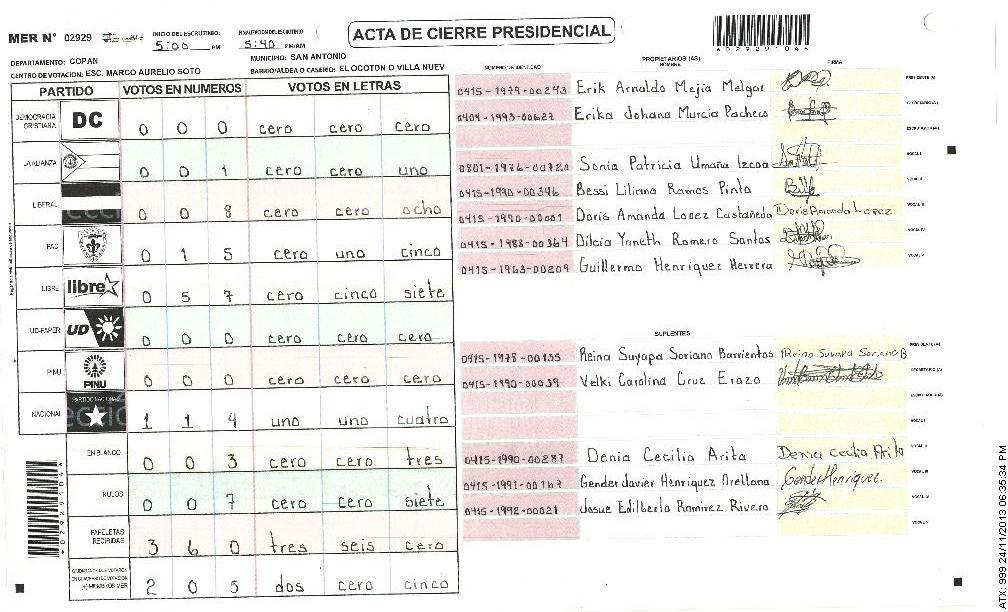 ACTA DE CIERRE PRESIDENCIAL
MER N° 02929
INICIO DEL ESCRUTINIO: 5:00 PM
5:40 PM/AM
DEPARTAMENTO: COPAN
MUNICIPIO: SAN ANTONIO
CENTRO DE VOTACION: ESC. MARCO AURELIO SOTO
BARRIO/ALDEA O CASERIO: EL OCOTON O VILLA NUEV
PARTIDO VOTOS EN NUMEROS VOTOS EN LETRAS
DEMOCRACIA CRISTIANA DC 0 0 0 cero cero cero
LA ALIANZA 0 0 1 cero cero uno
LIBERAL 0 0 8 cero cero ocho
PAC 0 1 5 cero uno cinco
LIBRE libre 0 5 7 cero cinco siete
UD-FAPER UD 0 0 0 cero cero cero
PINU PINU 0 0 0 cero cero cero
NACIONAL PARTIDO NACIONAL 1 1 4 uno uno cuatro
EN BLANCO 0 0 3 cero cero tres
NULOS 0 0 7 cero cero siete
PAPELETAS RECIBIDAS 3 6 0 tres seis cero
CIUDADANOS QUE VOTARON
EN CUADERNO DE VOTACION
(+) MIEMBROS MER 2 0 5 dos cero cinco
029291044
NUMERO DE IDENTIDAD
PROPIETARIOS (AS)
NOMBRE
FIRMA
0415-1979-00243 Erik Arnaldo Mejia Melgar PRESIDENTE (A)
0404-1993-00627 Erika Johana Murcia Pacheco SECRETARIO (A)
ESCRUTADOR (A)
0801-1976-00720 Sonia Patricia Umaña Izcoa VOCAL I
0415-1990-00346 Bessi Liliana Ramos Pinto VOCAL II
0415-1990-00001 Doris Amanda Lopez Castañeda Doris Amanda Lopez VOCAL III
0415-1988-00364 Dilcia Yaneth Romero Santos VOCAL IV
0415-1963-00209 Guillermo Henriquez Herrera VOCAL V
SUPLENTES
0415-1978-00135 Reina Suyapa Soriano Barrientos Reina Suyapa Soriano B PRESIDENTE (A)
0415-1990-00039 Velki Carolina Cruz Erazo SECRETARIO (A)
ESCRUTADOR (A)
VOCAL I
0415-1990-00287 Denia Cecilia Arita Denia Cecilia Arita VOCAL II
0415-1991-00167 Gender Javier Henriquez Orellana Gender Henriquez VOCAL III
0415-1992-00021 Josue Edilberto Ramirez Rivera VOCAL IV
VOCAL V
029291044
ATX: 999 24/11/2013 06:35:34 PM